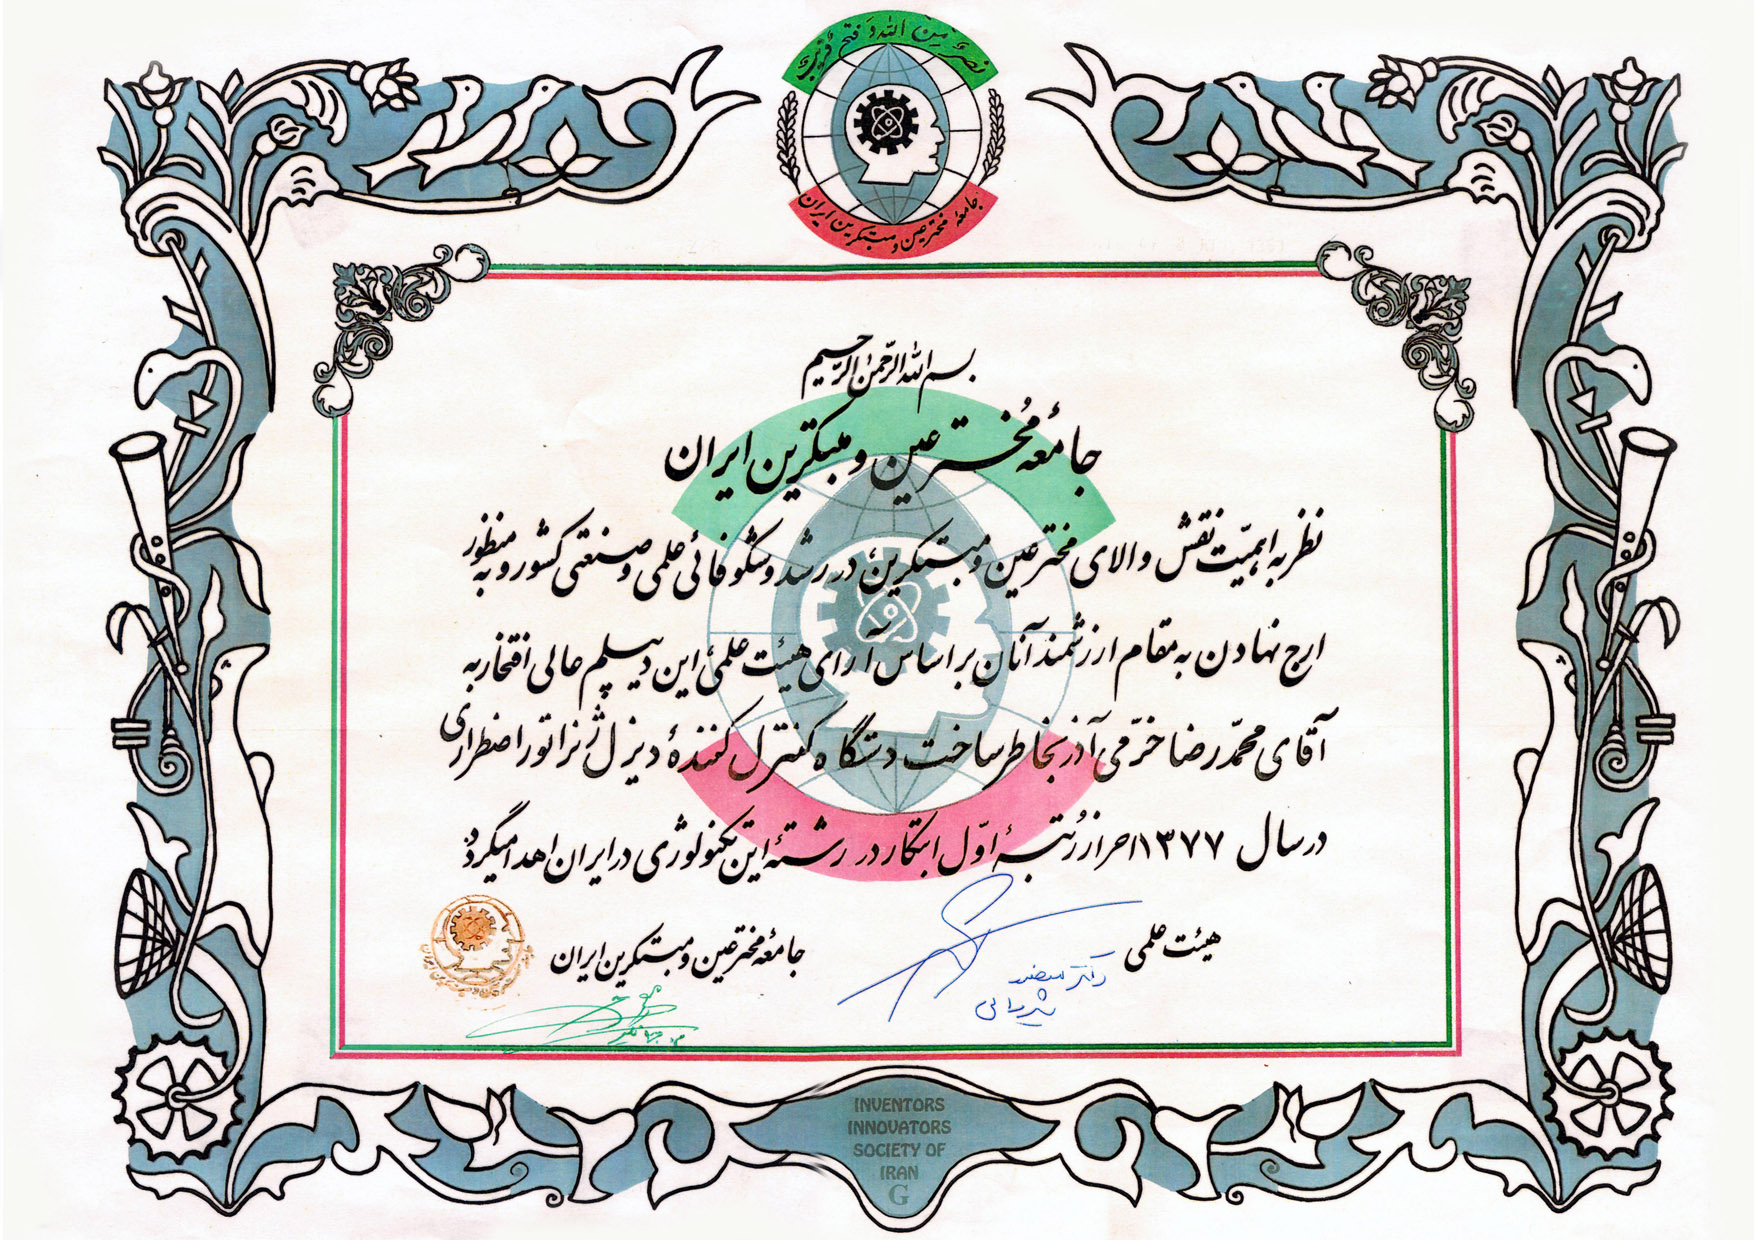 نصر مِن الله وَ فتح قریب
جامعهٔ مخترعین و مبتکرین ایران
بسم الله الرّحمن الرّحیم
جامعهٔ مُخترعین و مبتکرین ایران
نظر به اهمیّت نقش والای مخترعین و مبتکرین، در رشد و شکوفائی علمی و صنعتی کشور و به منظور
ارج نهادن به مقام ارزشمند آنان بر اساس آرای هیئت علمیٔ این دیپلم عالی افتخار به
آقای محمّدرضا خرّمی آذر بخاطر ساخت دستگاه کنترل کنندهٔ دیزل ژنراتور اضطراری
در سال ۱۳۷۷ احراز رُتبهٔ اوّل ابتکار در رشتهٔ این تکنولوژی در ایران اهدا میگردد
هیئت علمی
جامعهٔ مخترعین و مبتکرین ایران
دکتر
INVENTORS
INNOVATORS
SOCIETY OF
IRAN
G